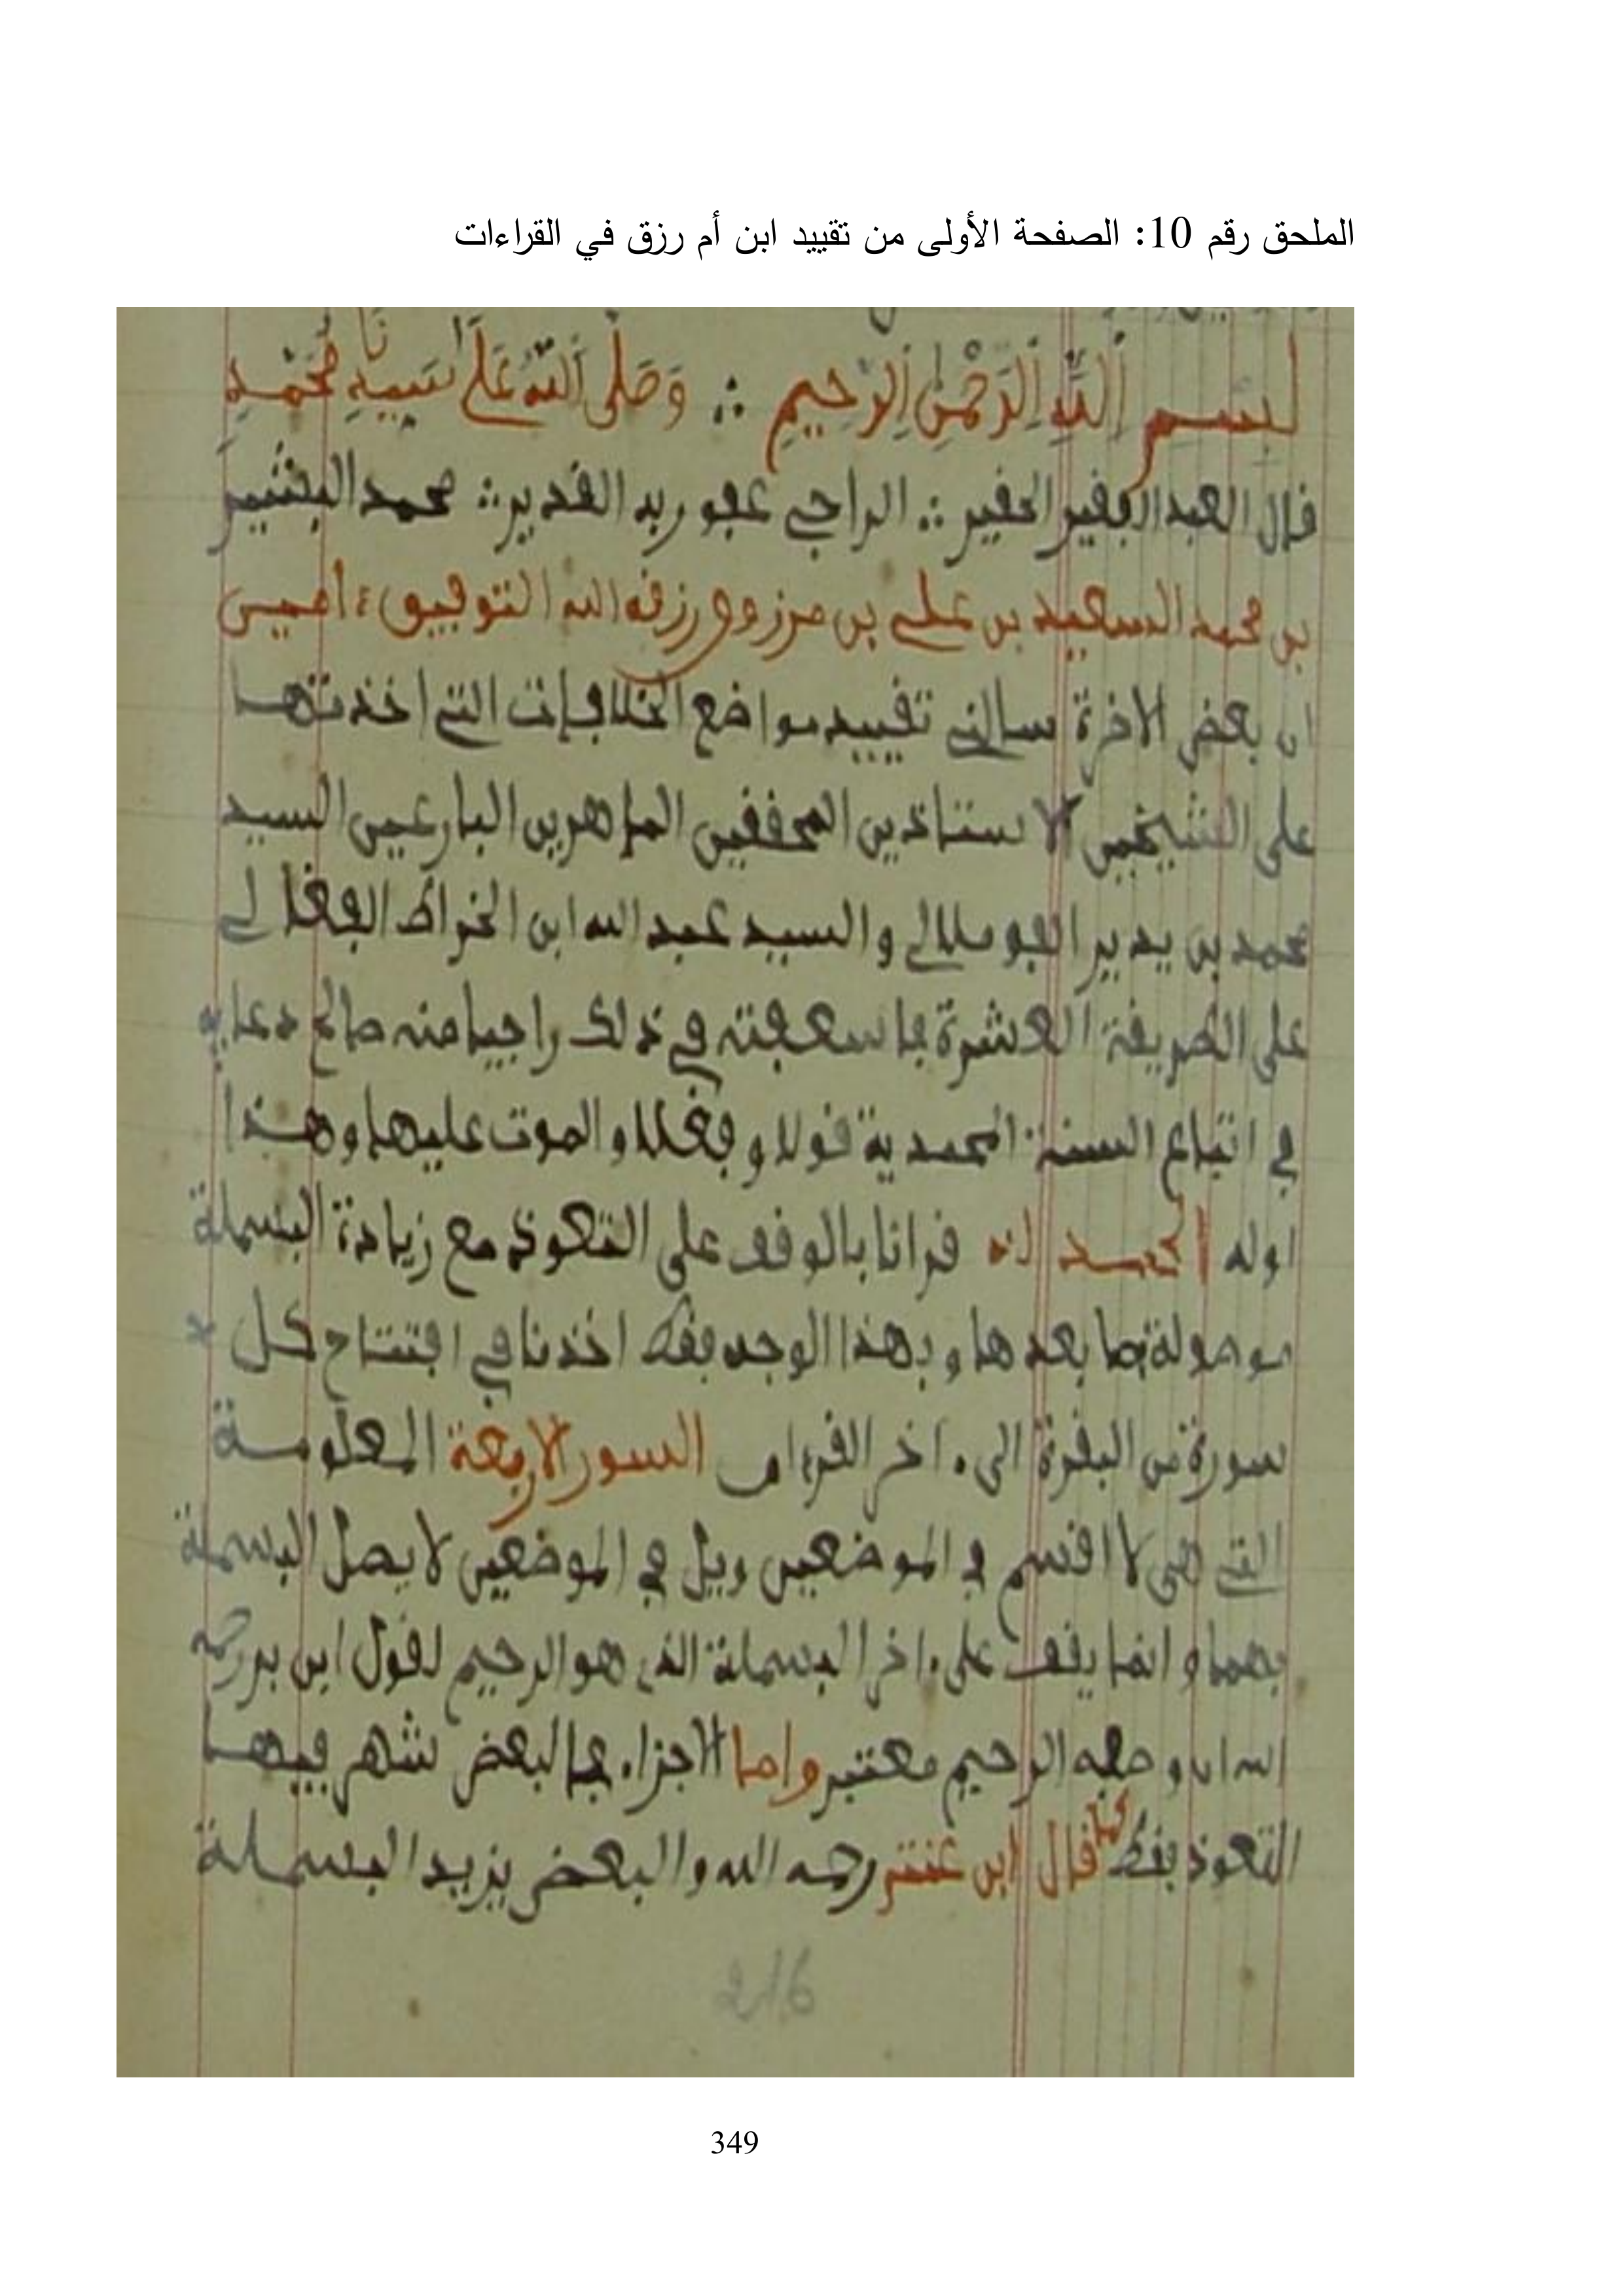 الملحق رقم 10: الصفحة الأولى من تقييد ابن أم رزق في القراءات
بِسْمِ اِللَّهِ اِلرَّحْمَٰنِ اِلرَّحِيمِ ∴ وَصَلَّى اَللَّهُ عَلَى سَيِّدِنَا مُحَمَّدٍ
قال العبد الفقير الحقير ∴ الراجي عفو ربه القدير ∴ محمد البشير
بن محمد السعيد بن علي بن مرزوق رزقه الله التوفيق ءاميـن
ان بعض الاخرة سالني تقييد مواضع الخلافيات التي اخذتها
على الشيخين الاستاذين المحققين الماهرين البارعين السيد
محمد بن يدير والسيد عبد الله ابن الخراط
على الطريقة العشرة فاسعفته في ذلك راجيا منه صالح دعايه
في اتباع السنة المحمدية قولا وفعلا والموت عليها وهـذا
اوله الحمـد لله قرانا بالوقف على التعوذ مع زيادة البسملة
موصولة بما بعدها وبهذا الوجه فقط اخذنا في افتتاح كل
سورة من البقرة الى ءاخر القرءان السور الاربعة المعلومـة
التي هي لا اقسم في الموضعين وويل في الموضعين لا يصل البسملة
بهما وانما يقف على ءاخر البسملة الذي هو الرحيم لقول ابن بري رحمه
الله ان وصفه الرحيم معتبر واما الاجزاء فالبعض شهر فيها
التعوذ فقط كما قال ابن رحمه الله والبعض يزيد البسملة
216
349